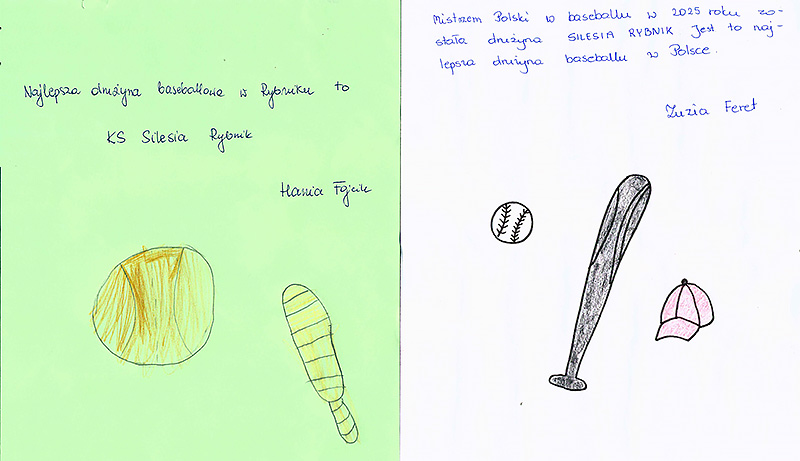 Najlepsza drużyna baseballowa w Rybniku to
KS Silesia Rybnik
Hania Fojcik
Mistrzem Polski w baseballu w 2025 roku zo-
stała drużyna SILESIA RYBNIK Jest to naj-
lepsza drużyna baseballu w Polsce.
Zuzia Feret